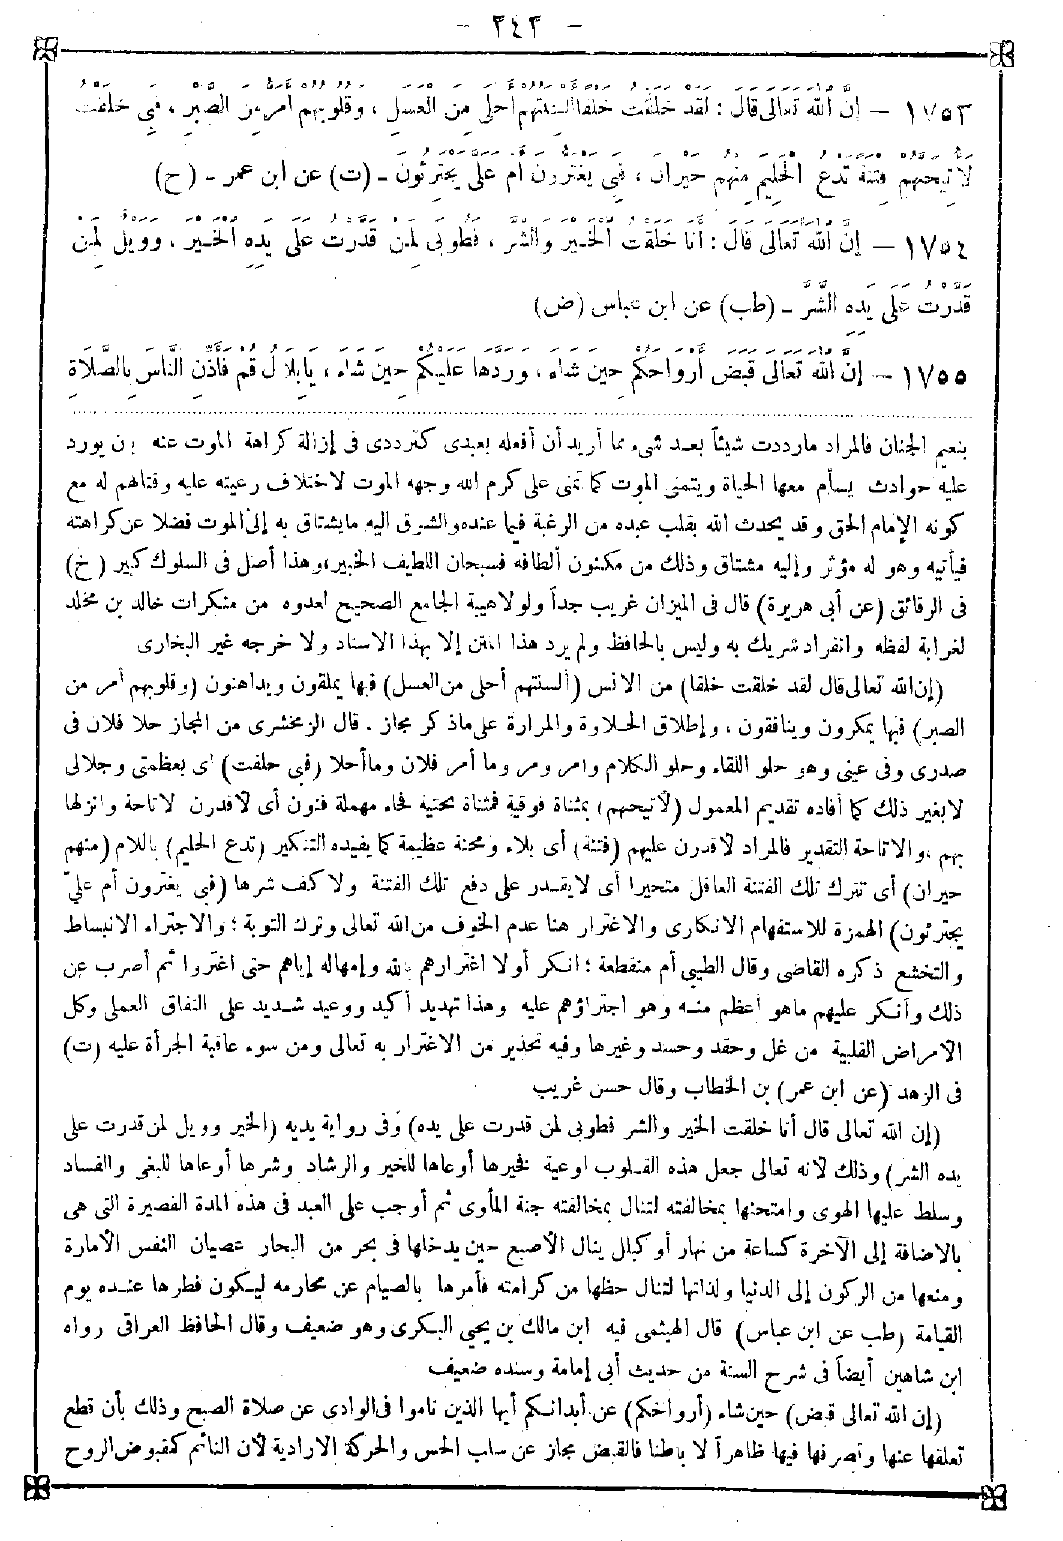 - ٢٤٢ -
١٧٥٣ - إِنَّ اللهَ تَعَالَى قَالَ : لَقَدْ خَلَقْتُ خَلْقًا أَلْسِنَتُهُمْ أَحْلَى مِنَ الْعَسَلِ ، وَقُلُوبُهُمْ أَمَرُّ مِنَ الصَّبْرِ ، فَبِي حَلَفْتُ
لَأُتِيحَنَّهُمْ فِتْنَةً تَدَعُ الْحَلِيمَ مِنْهُمْ حَيْرَانَ ، فَبِي يَغْتَرُّونَ أَمْ عَلَيَّ يَجْتَرِئُونَ - (ت) عن ابن عمر - (ح)
١٧٥٤ - إِنَّ اللهَ تَعَالَى قَالَ : أَنَا خَلَقْتُ الْخَيْرَ وَالشَّرَّ ، فَطُوبَى لِمَنْ قَدَّرْتُ عَلَى يَدِهِ الْخَيْرَ ، وَوَيْلٌ لِمَنْ
قَدَّرْتُ عَلَى يَدِهِ الشَّرَّ - (طب) عن ابن عباس (ض)
١٧٥٥ - إِنَّ اللهَ تَعَالَى قَبَضَ أَرْوَاحَكُمْ حِينَ شَاءَ ، وَرَدَّهَا عَلَيْكُمْ حِينَ شَاءَ ، يَابِلَالُ قُمْ فَأَذِّنِ النَّاسَ بِالصَّلَاةِ
بنعيم الجنان فالمراد مارددت شيئاً بعد شىء مما أريد أن أفعله بعبدى كترددى فى إزالة كراهة الموت عنه بأن يورد
عليه حوادث يسأم معها الحياة ويتمنى الموت كما تمنى على كرم الله وجهه الموت لاختلاف رعيته عليه وقتالهم له مع
كونه الإمام الحق وقد يحدث الله بقلب عبده من الرغبة فيما عنده والشوق اليه مايشتاق به إلى الموت فضلا عن كراهته
فيأتيه وهو له مؤثر وإليه مشتاق وذلك من مكنون ألطافه فسبحان اللطيف الخبير، وهذا أصل فى السلوك كبير (خ)
فى الرقائق (عن أبى هريرة) قال فى الميزان غريب جداً ولولاهيبة الجامع الصحيح لعدوه من منكرات خالد بن مخلد
لغرابة لفظه وانفراد شريك به وليس بالحافظ ولم يرد هذا المتن إلا بهذا الاسناد ولا خرجه غير البخارى
(إن الله تعالى قال لقد خلقت خلقا) من الانس (ألسنتهم أحلى من العسل) فبها يملقون ويداهنون (وقلوبهم أمر من
الصبر) فبها يمكرون وينافقون ، وإطلاق الحلاوة والمرارة على ماذكر مجاز . قال الزمخشرى من المجاز حلا فلان فى
صدرى وفى عينى وهو حلو اللقاء وحلو الكلام وامر ومر وما أمر فلان وما أحلا (فبى حلفت) اى بعظمتى وجلالى
لابغير ذلك كما أفاده تقديم المعمول (لأتيحنهم) بمثناة فوقية فمثناة تحتية فحاء مهملة فنون أى لأقدرن لاتاحة وانزلها
بهم ،والاتاحة التقدير فالمراد لأقدرن عليهم (فتنة) أى بلاء ومحنة عظيمة كما يفيده التنكير (تدع الحليم) باللام (منهم
حيران) أى تترك تلك الفتنة العاقل متحيرا أى لايقدر على دفع تلك الفتنة ولا كف شرها (فبى يغترون أم علىّ
يجترئون) الهمزة للاستفهام الانكارى والاغترار هنا عدم الخوف من الله تعالى وترك التوبة ؛ والاجتراء الانبساط
والتخشع ذكره القاضى وقال الطيبى أم منقطعة ؛ انكر أولا اغترارهم بالله وإمهاله إياهم حتى اغتروا ثم أضرب عن
ذلك وأنكر عليهم ماهو أعظم منه وهو اجتراؤهم عليه وهذا تهديد أكيد ووعيد شديد على النفاق العملى وكل
الامراض القلبية من غل وحقد وحسد وغيرها وفيه تحذير من الاغترار به تعالى ومن سوء عاقبة الجرأة عليه (ت)
فى الزهد (عن ابن عمر) بن الخطاب وقال حسن غريب
(إن الله تعالى قال أنا خلقت الخير والشر فطوبى لمن قدرت على يده) وفى رواية يديه (الخير وويل لمن قدرت على
يده الشر) وذلك لانه تعالى جعل هذه القلوب اوعية فخيرها أوعاها للخير والرشاد وشرها أوعاها للبغى والفساد
وسلط عليها الهوى وامتحنها بمخالفته لتنال بمخالفته جنة المأوى ثم أوجب على العبد فى هذه المدة القصيرة التى هى
بالاضافة إلى الآخرة كساعة من نهار أو كبلل ينال الأصبع حين يدخلها فى بحر من البحار عصيان النفس الأمارة
ومنعها من الركون إلى الدنيا ولذاتها لتنال حظها من كرامته فأمرها بالصيام عن محارمه ليكون فطرها عنده يوم
القيامة (طب عن ابن عباس) قال الهيثمى فيه ابن مالك بن يحيى البكرى وهو ضعيف وقال الحافظ العراقى رواه
ابن شاهين أيضاً فى شرح السنة من حديث أبى إمامة وسنده ضعيف
(إن الله تعالى قبض) حين شاء (أرواحكم) عن أبدانكم أيها الذين ناموا فى الوادى عن صلاة الصبح وذلك بأن قطع
تعلقها عنها وتصرفها فيها ظاهراً لا باطنا فالقبض مجاز عن سلب الحس والحركة الارادية لأن النائم كمقبوض الروح